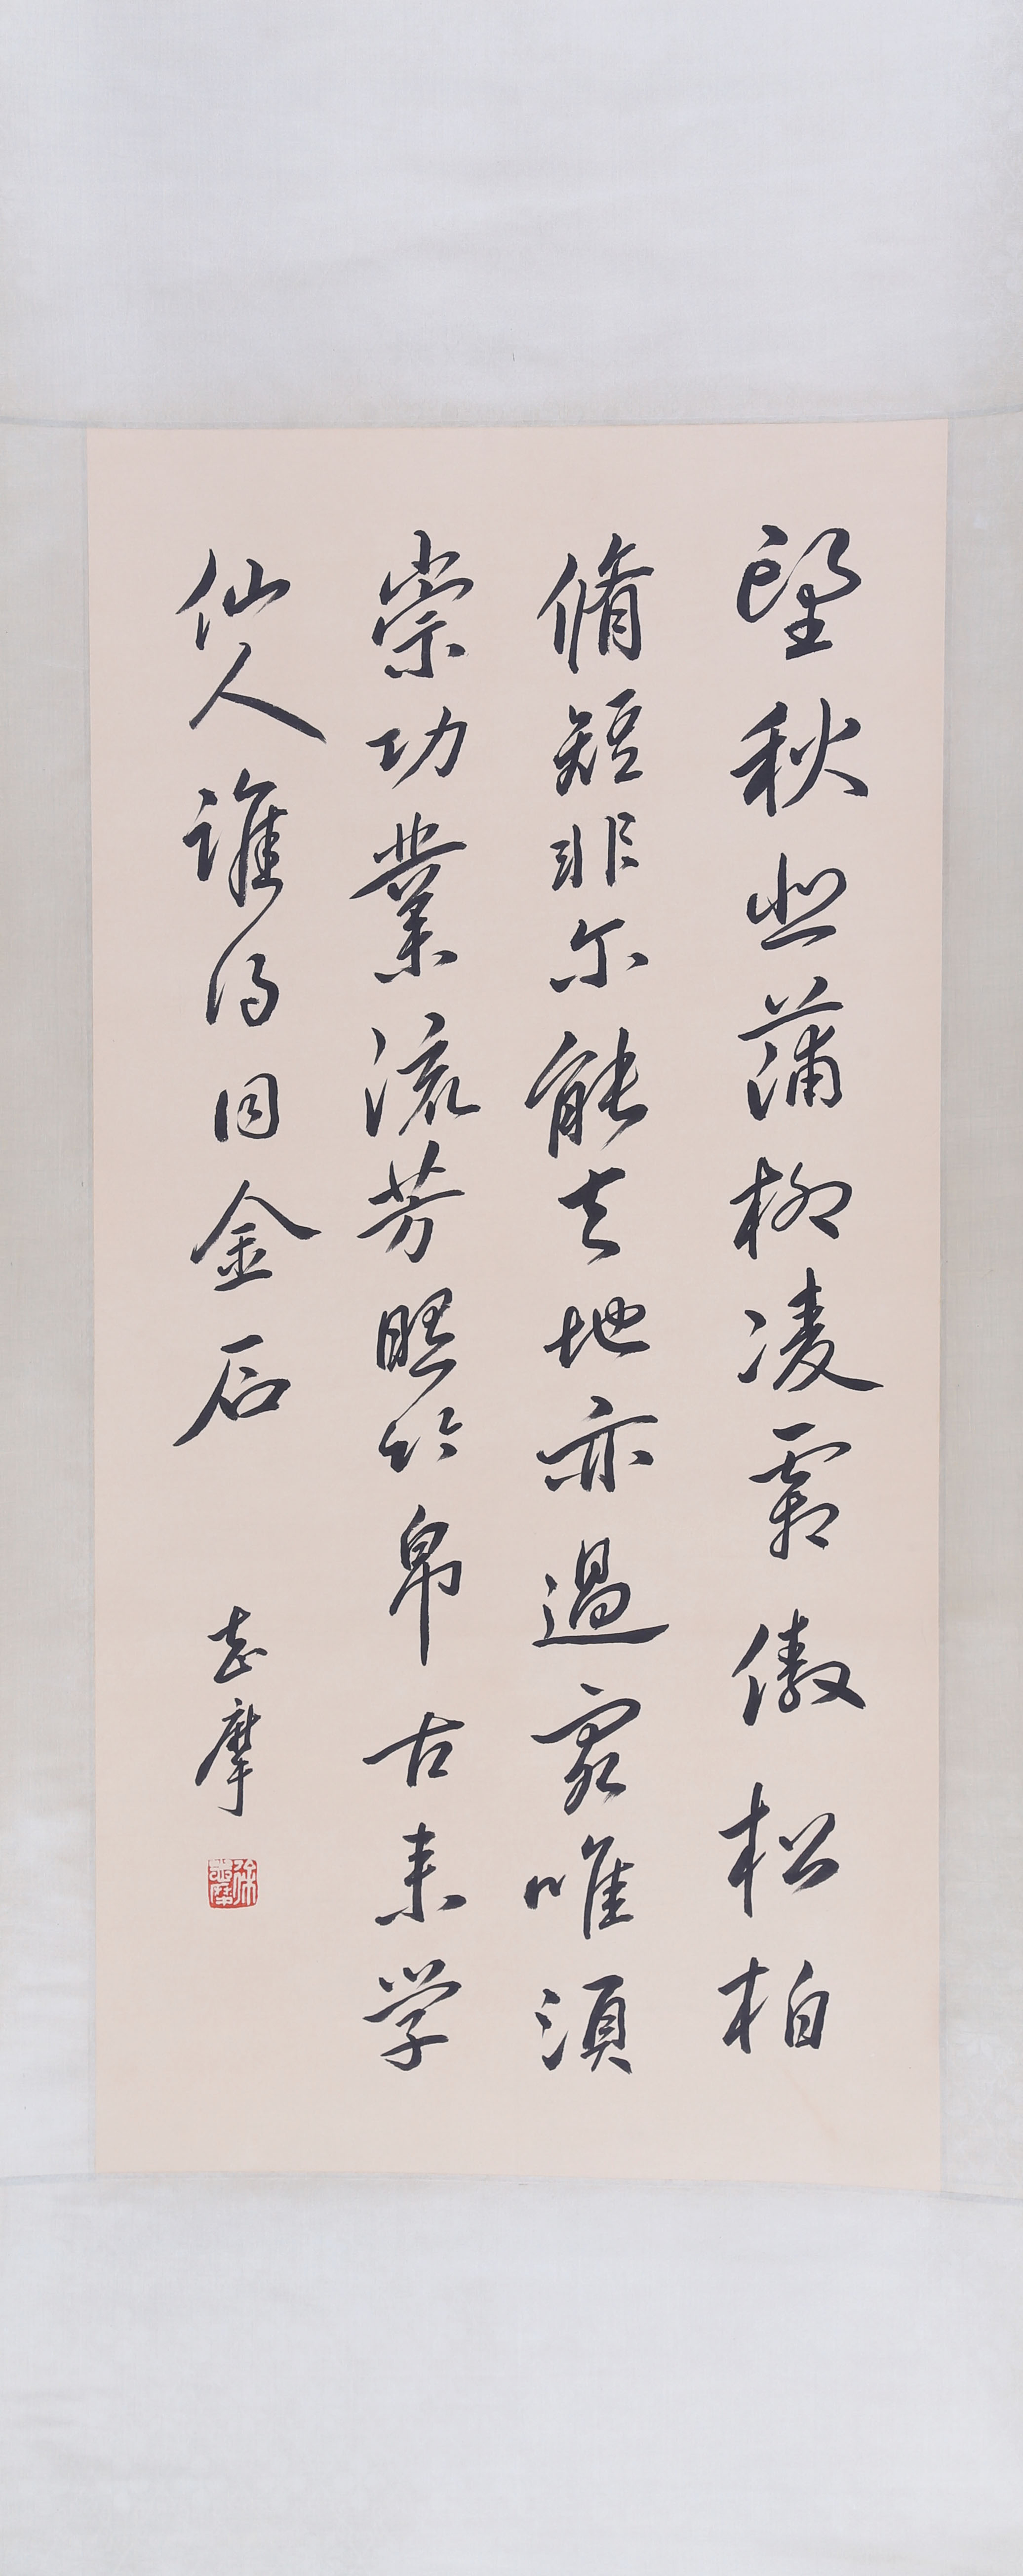 望秋悲蒲柳凌霜傲松柏
脩短非尔能天地亦過客唯須
崇功業流芳照竹帛古来学
仙人谁得同金石
志摩
徐志摩